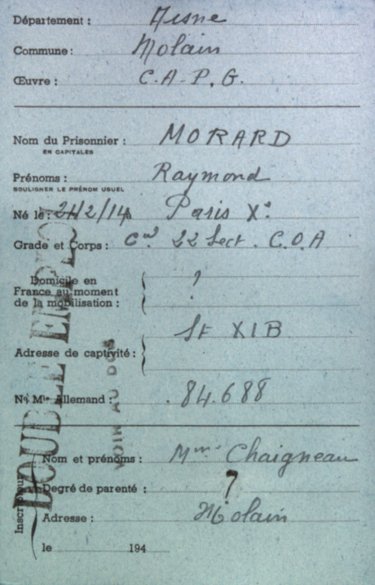 Département : Aisne
Commune : Molain
Œuvre : C.A.P.G.
Nom du Prisonnier : MORARD
EN CAPITALES
Prénoms : Raymond
SOULIGNER LE PRÉNOM USUEL
Né le : 24/2/14 Paris X°
Grade et Corps : Cal 22 Sect. C.O.A
Domicile en
France au moment
de la mobilisation : ?
Adresse de captivité : St XIB
No Mle Allemand : 84.688
Nom et prénoms : Mme Chaigneau
Degré de parenté : ?
Adresse : Molain
le 194
DOUBLE EMPLOI
VOIR AU DOS